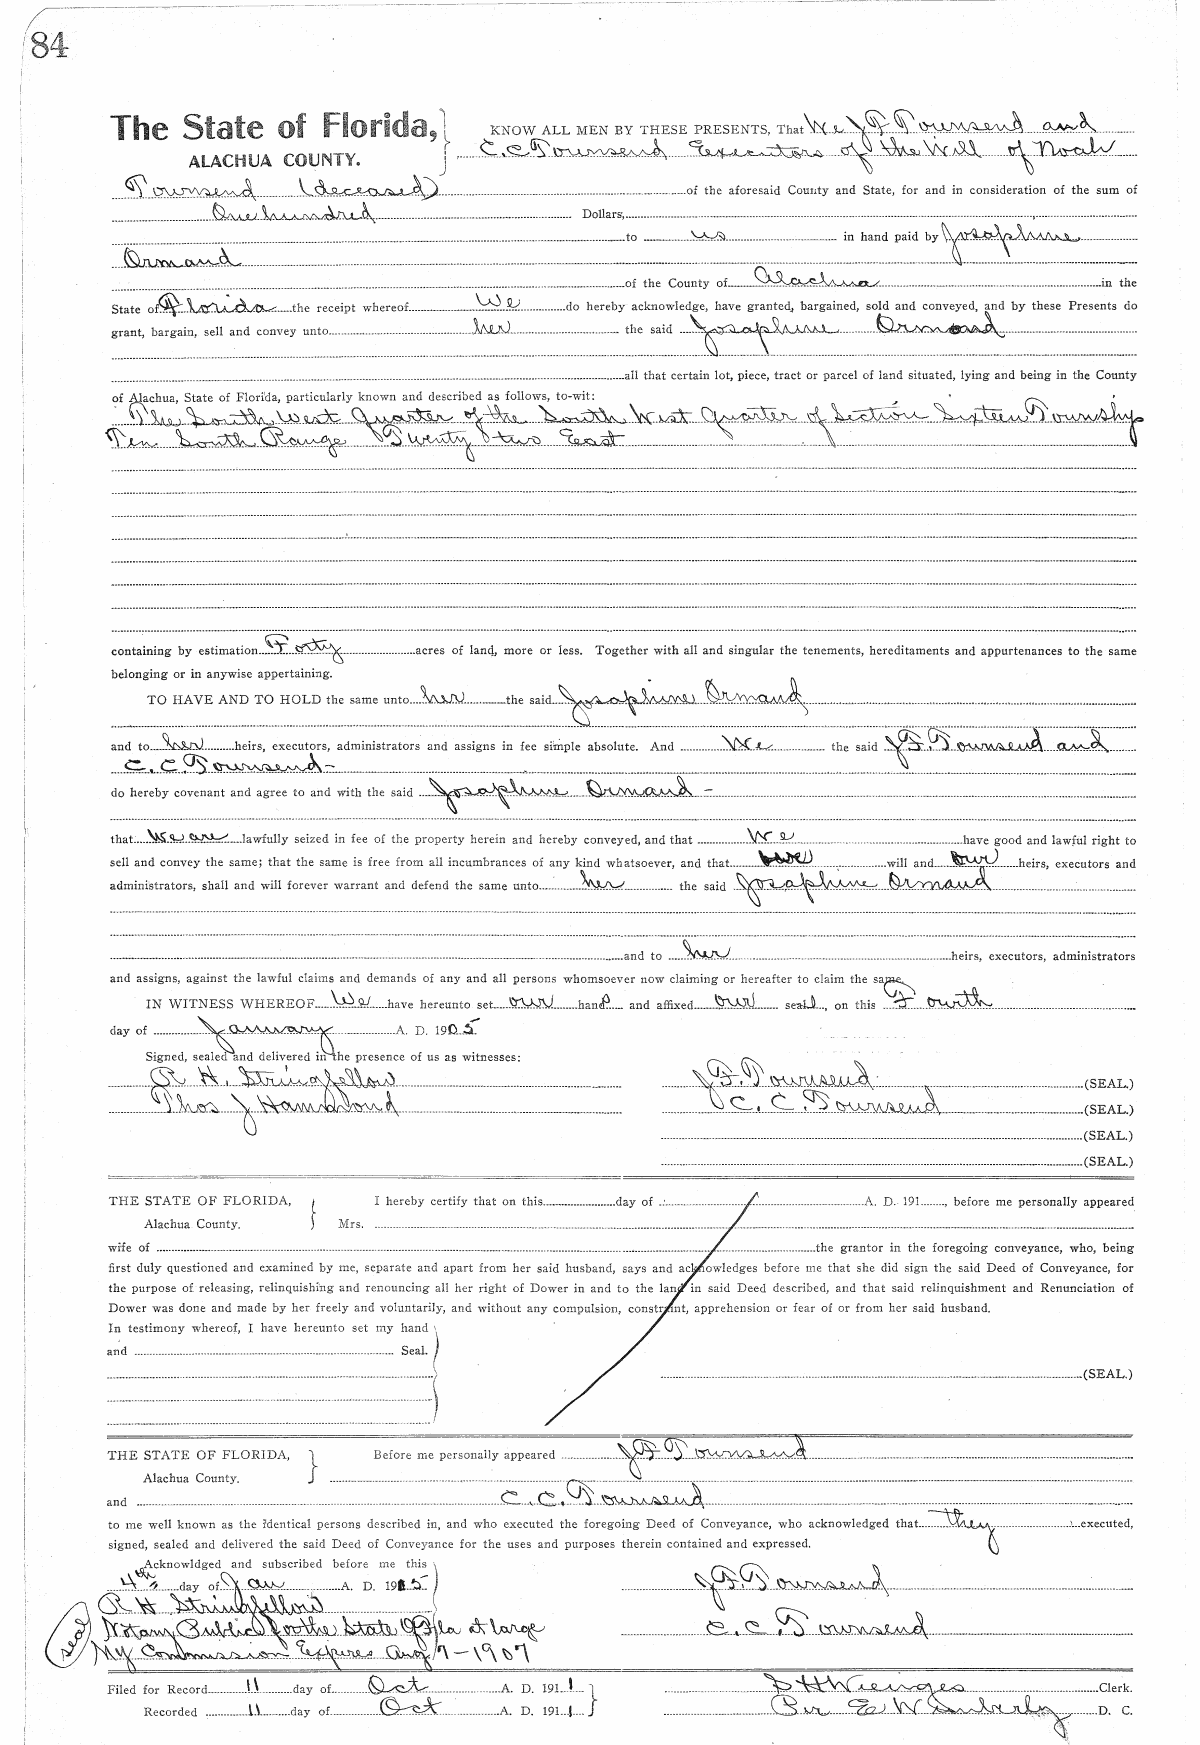 84
The State of Florida, KNOW ALL MEN BY THESE PRESENTS, That We J F Townsend and
ALACHUA COUNTY. C. C Townsend Executors of the Will of Noah
Townsend (deceased) of the aforesaid County and State, for and in consideration of the sum of
One hundred Dollars,
to us in hand paid by Josaphine
Ormand
of the County of Alachua in the
State of Florida the receipt whereof We do hereby acknowledge, have granted, bargained, sold and conveyed, and by these Presents do
grant, bargain, sell and convey unto her the said Josaphine Ormond
all that certain lot, piece, tract or parcel of land situated, lying and being in the County
of Alachua, State of Florida, particularly known and described as follows, to-wit:
The South West Quarter of the South West Quarter of Section Sixteen Township
Ten South Range Twenty two East
containing by estimation Forty acres of land, more or less. Together with all and singular the tenements, hereditaments and appurtenances to the same
belonging or in anywise appertaining.
TO HAVE AND TO HOLD the same unto her the said Josaphine Ormand
and to her heirs, executors, administrators and assigns in fee simple absolute. And We the said J F. Townsend and
C. C. Townsend-
do hereby covenant and agree to and with the said Josaphine Ormand -
that we are lawfully seized in fee of the property herein and hereby conveyed, and that We have good and lawful right to
sell and convey the same; that the same is free from all incumbrances of any kind whatsoever, and that we will and our heirs, executors and
administrators, shall and will forever warrant and defend the same unto her the said Josaphine Ormand
and to her heirs, executors, administrators
and assigns, against the lawful claims and demands of any and all persons whomsoever now claiming or hereafter to claim the same.
IN WITNESS WHEREOF We have hereunto set our hand and affixed our seal, on this Fourth
day of January A. D. 1905
Signed, sealed and delivered in the presence of us as witnesses:
R H. Stringfellow J F. Townsend (SEAL.)
Thos J Hammond C. C. Townsend (SEAL.)
(SEAL.)
(SEAL.)
THE STATE OF FLORIDA, I hereby certify that on this day of A. D. 191 , before me personally appeared
Alachua County. Mrs.
wife of the grantor in the foregoing conveyance, who, being
first duly questioned and examined by me, separate and apart from her said husband, says and acknowledges before me that she did sign the said Deed of Conveyance, for
the purpose of releasing, relinquishing and renouncing all her right of Dower in and to the land in said Deed described, and that said relinquishment and Renunciation of
Dower was done and made by her freely and voluntarily, and without any compulsion, constraint, apprehension or fear of or from her said husband.
In testimony whereof, I have hereunto set my hand
and Seal.
(SEAL.)
THE STATE OF FLORIDA, Before me personally appeared J F Townsend
Alachua County.
and C. C. Townsend
to me well known as the identical persons described in, and who executed the foregoing Deed of Conveyance, who acknowledged that they executed,
signed, sealed and delivered the said Deed of Conveyance for the uses and purposes therein contained and expressed.
Acknowldged and subscribed before me this
4th day of Jan A. D. 1905 J F Townsend
R H Stringfellow
seal Notary Public for the State Of Fla at large C. C. Townsend
My Commission Expires Aug 7-1907
Filed for Record 11 day of Oct A. D. 1911 S H Wienges Clerk.
Recorded 11 day of Oct A. D. 1911 Per E W D. C.